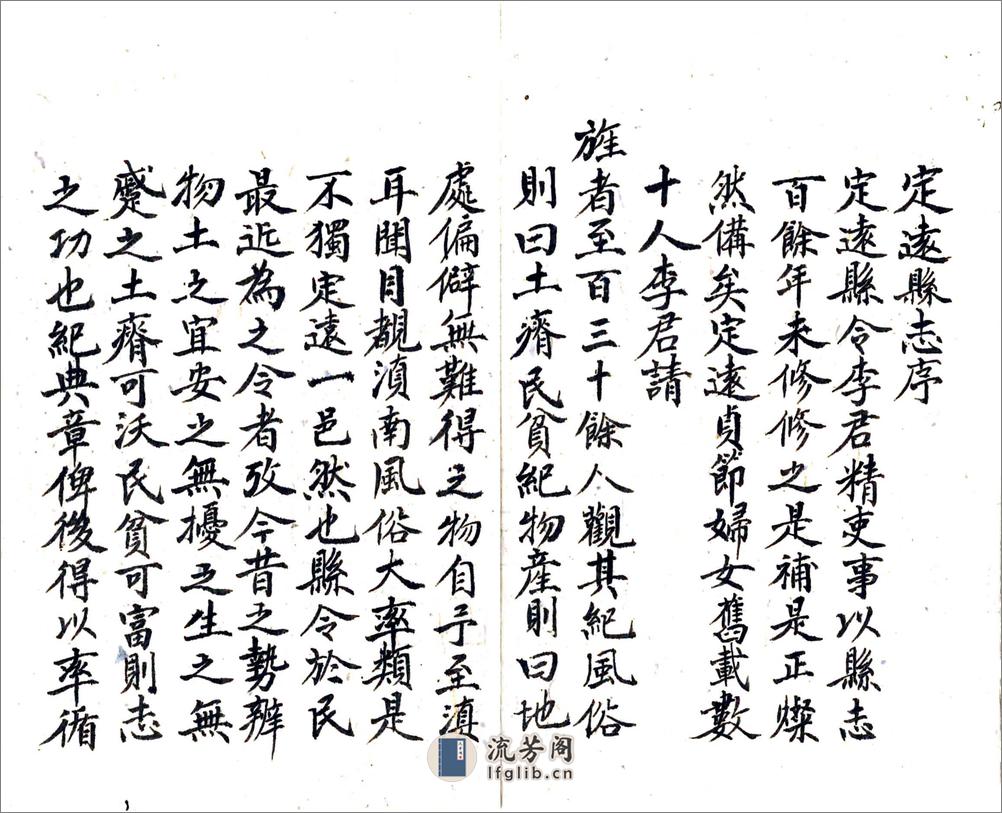 定遠縣志序
定遠縣令李君精吏事以縣志
百餘年未修修之是補是正燦
然備矣定遠貞節婦女舊載數
十人李君請
旌者至百三十餘人觀其紀風俗
則曰土瘠民貧紀物產則曰地
處偏僻無難得之物自予至滇
耳聞目覩滇南風俗大率類是
不獨定遠一邑然也縣令於民
最近為之令者攷今昔之勢辨
物土之宜安之無擾之生之無
蹙之土瘠可沃民貧可富則志
之功也紀典章俾後得以率循
流芳阁
lfglib.cn